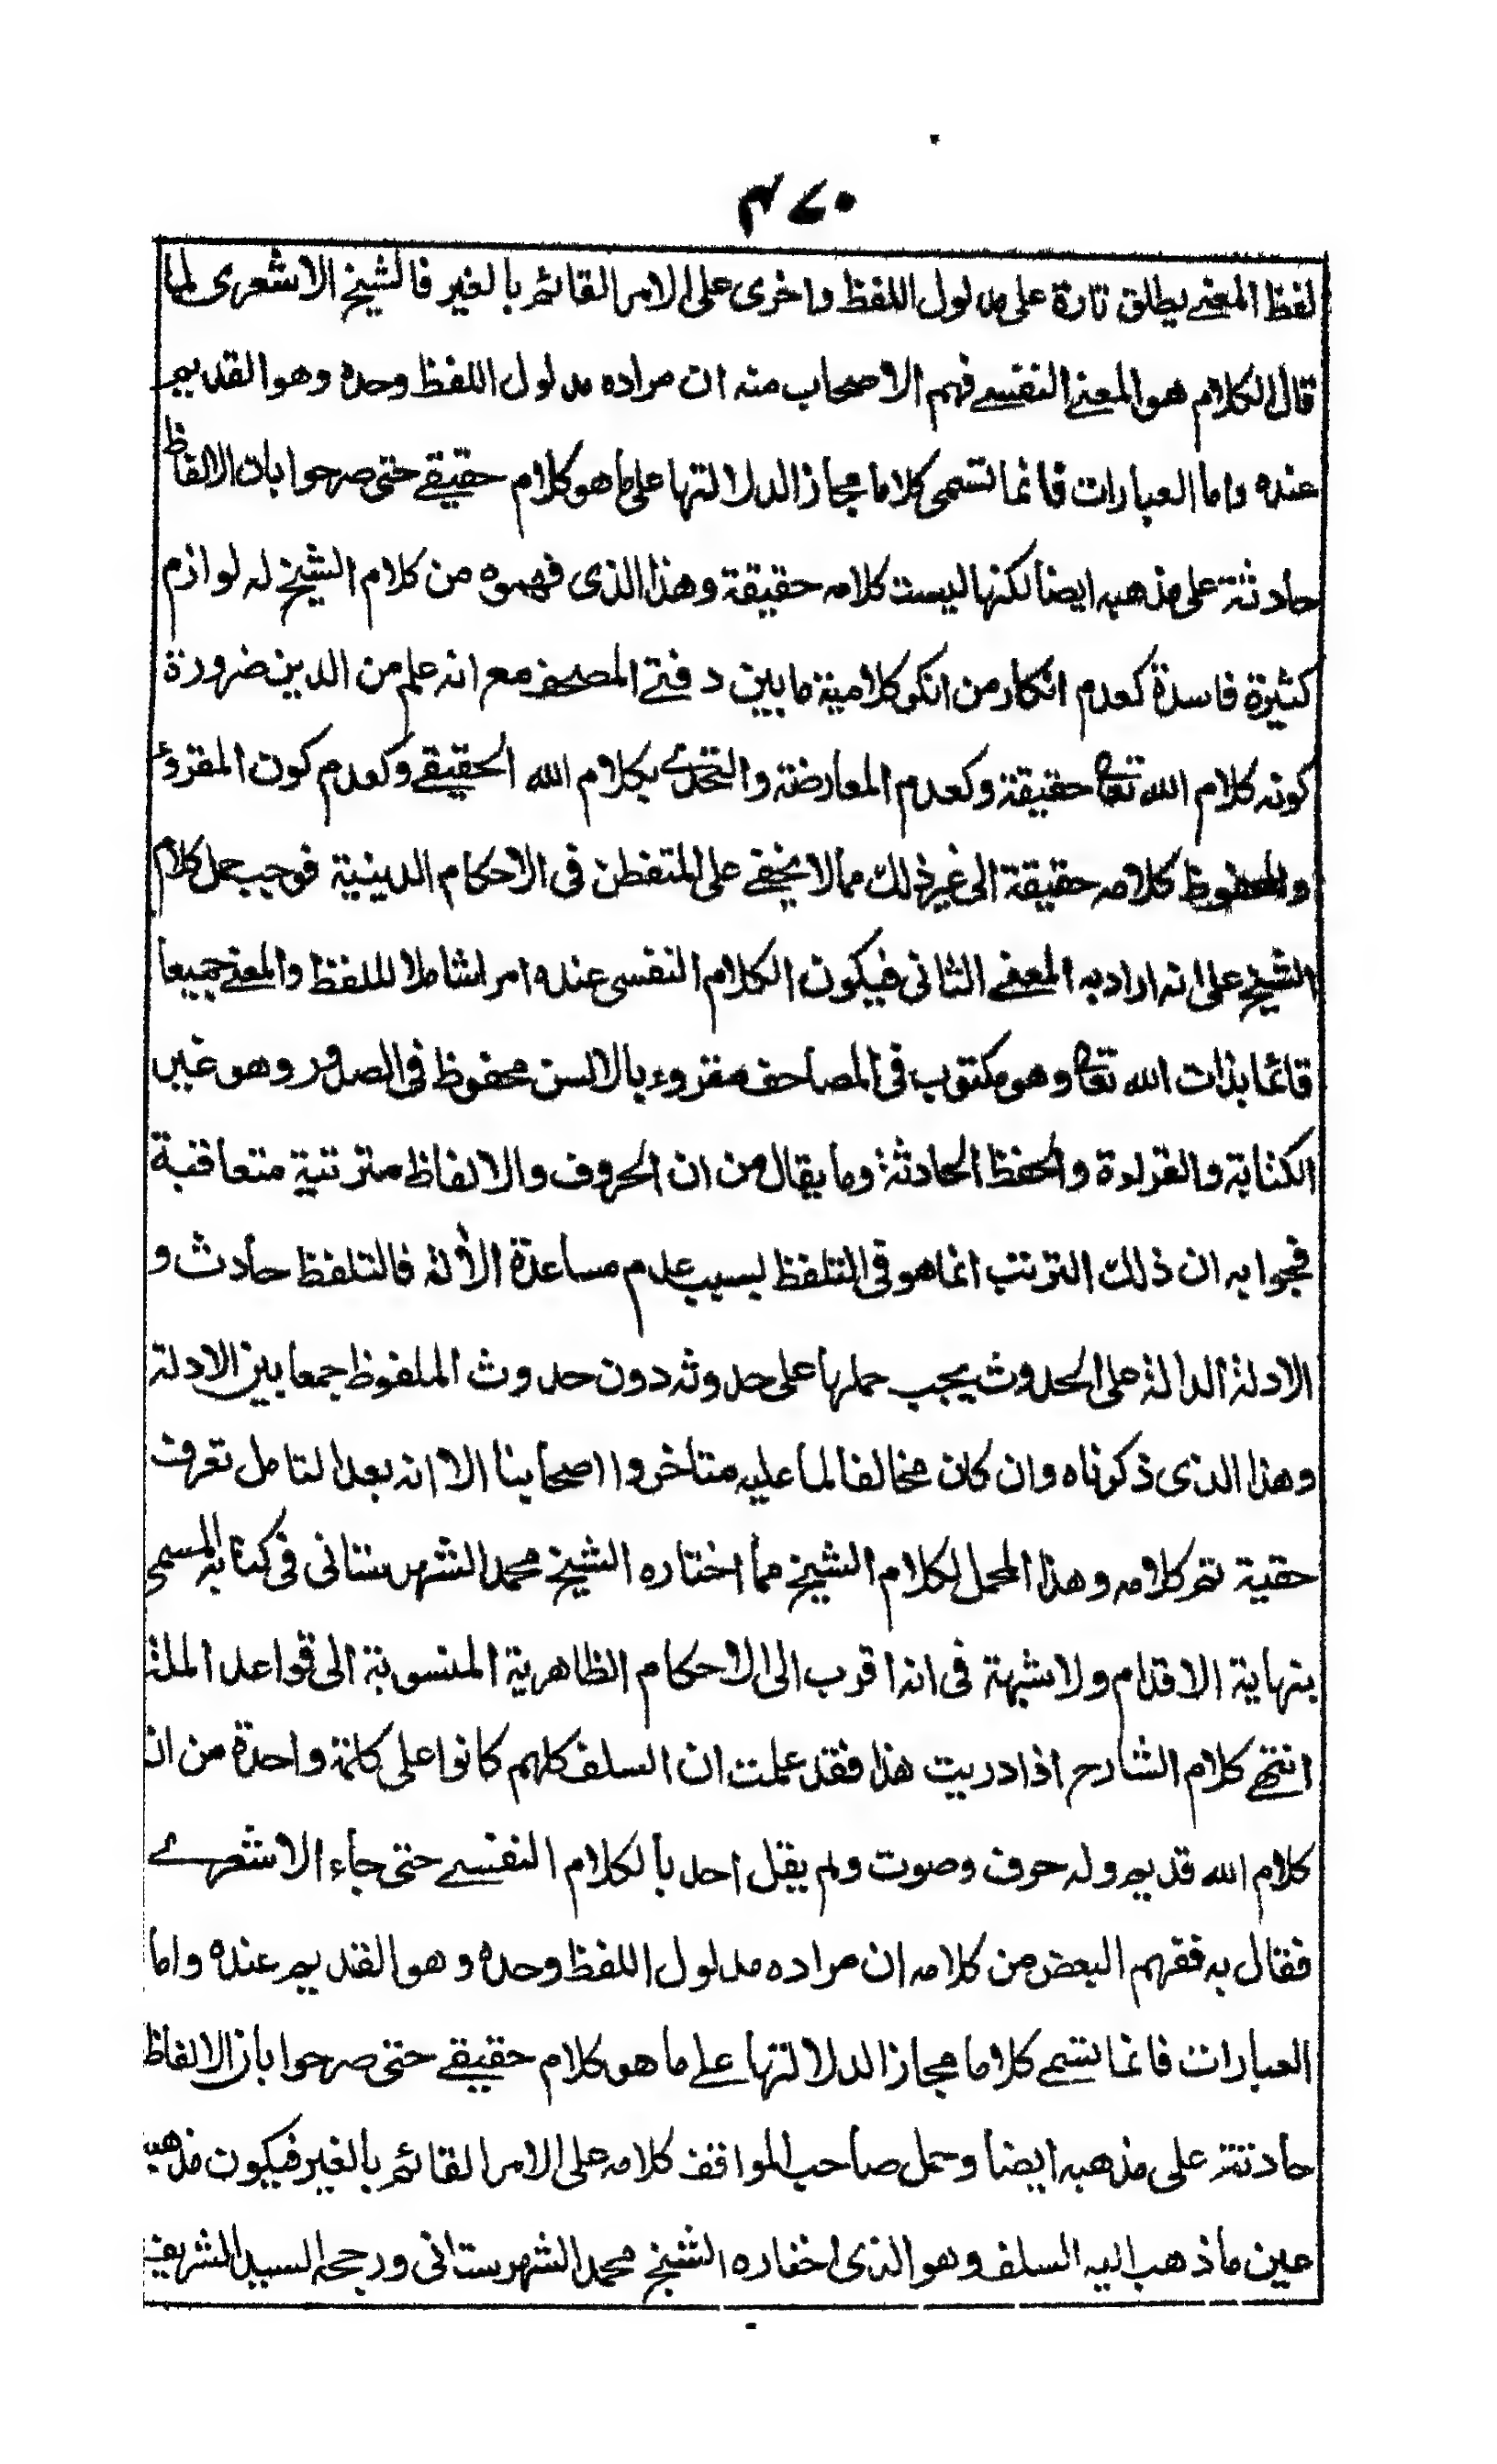 ٤٧٠
لفظ المعنى يطلق تارة على مدلول اللفظ واخرى على الامر القائم بالغير فالشيخ الاشعرى لما
قال الكلام هو المعنى النفسى فهم الاصحاب منه ان مراده مدلول اللفظ وحده وهو القديم
عنده واما العبارات فانما تسمى كلاما مجازا لدلالتها على ما هو كلام حقيقى حتى صرحوا بان الالفاظ
حادثة على مذهبه ايضا لكنها ليست كلامه حقيقة وهذا الذى فهموه من كلام الشيخ له لوازم
كثيرة فاسدة كعدم انكار من انكر كلامية ما بين دفتى المصحف مع انه علم من الدين ضرورة
كونه كلام الله تعالى حقيقة وكعدم المعارضة والتحدى بكلام الله الحقيقى وكعدم كون المقروء
والمحفوظ كلامه حقيقة الى غير ذلك مما لا يخفى على المتفطن فى الاحكام الدينية فوجب حمل كلام
الشيخ على انه اراد به المعنى الثانى فيكون الكلام النفسى عنده امرا شاملا للفظ والمعنى جميعا
قائما بذات الله تعالى وهو مكتوب فى المصاحف مقروء بالالسن محفوظ فى الصدور وهو غير
الكتابة والقراءة والحفظ الحادثة وما يقال من ان الحروف والالفاظ مترتبة متعاقبة
فجوابه ان ذلك الترتب انما هو فى التلفظ بسبب عدم مساعدة الألة فالتلفظ حادث و
الادلة الدالة على الحدوث يجب حملها على حدوثه دون حدوث الملفوظ جمعا بين الادلة
وهذا الذى ذكرناه وان كان مخالفا لما عليه متاخروا اصحابنا الا انه بعد التامل تعرف
حقية تم كلامه وهذا المحمل لكلام الشيخ مما اختاره الشيخ محمد الشهرستانى فى كتابه المسمى
بنهاية الاقدام ولا شبهة فى انه اقرب الى الاحكام الظاهرية المنسوبة الى قواعد الملة
انتهى كلام الشارح اذا دريت هذا فقد علمت ان السلف كلهم كانوا على كلمة واحدة من ان
كلام الله قديم وله حرف وصوت ولم يقل احد بالكلام النفسى حتى جاء الاشعرى
فقال به ففهم البعض من كلامه ان مراده مدلول اللفظ وحده وهو القديم عنده واما
العبارات فانما تسمى كلاما مجازا لدلالتها على ما هو كلام حقيقى حتى صرحوا بان الالفاظ
حادثة على مذهبه ايضا وحمل صاحب المواقف كلامه على الامر القائم بالغير فيكون مذهبه
عين ما ذهب اليه السلف وهو الذى اختاره الشيخ محمد الشهرستانى ورجحه السيد الشريف